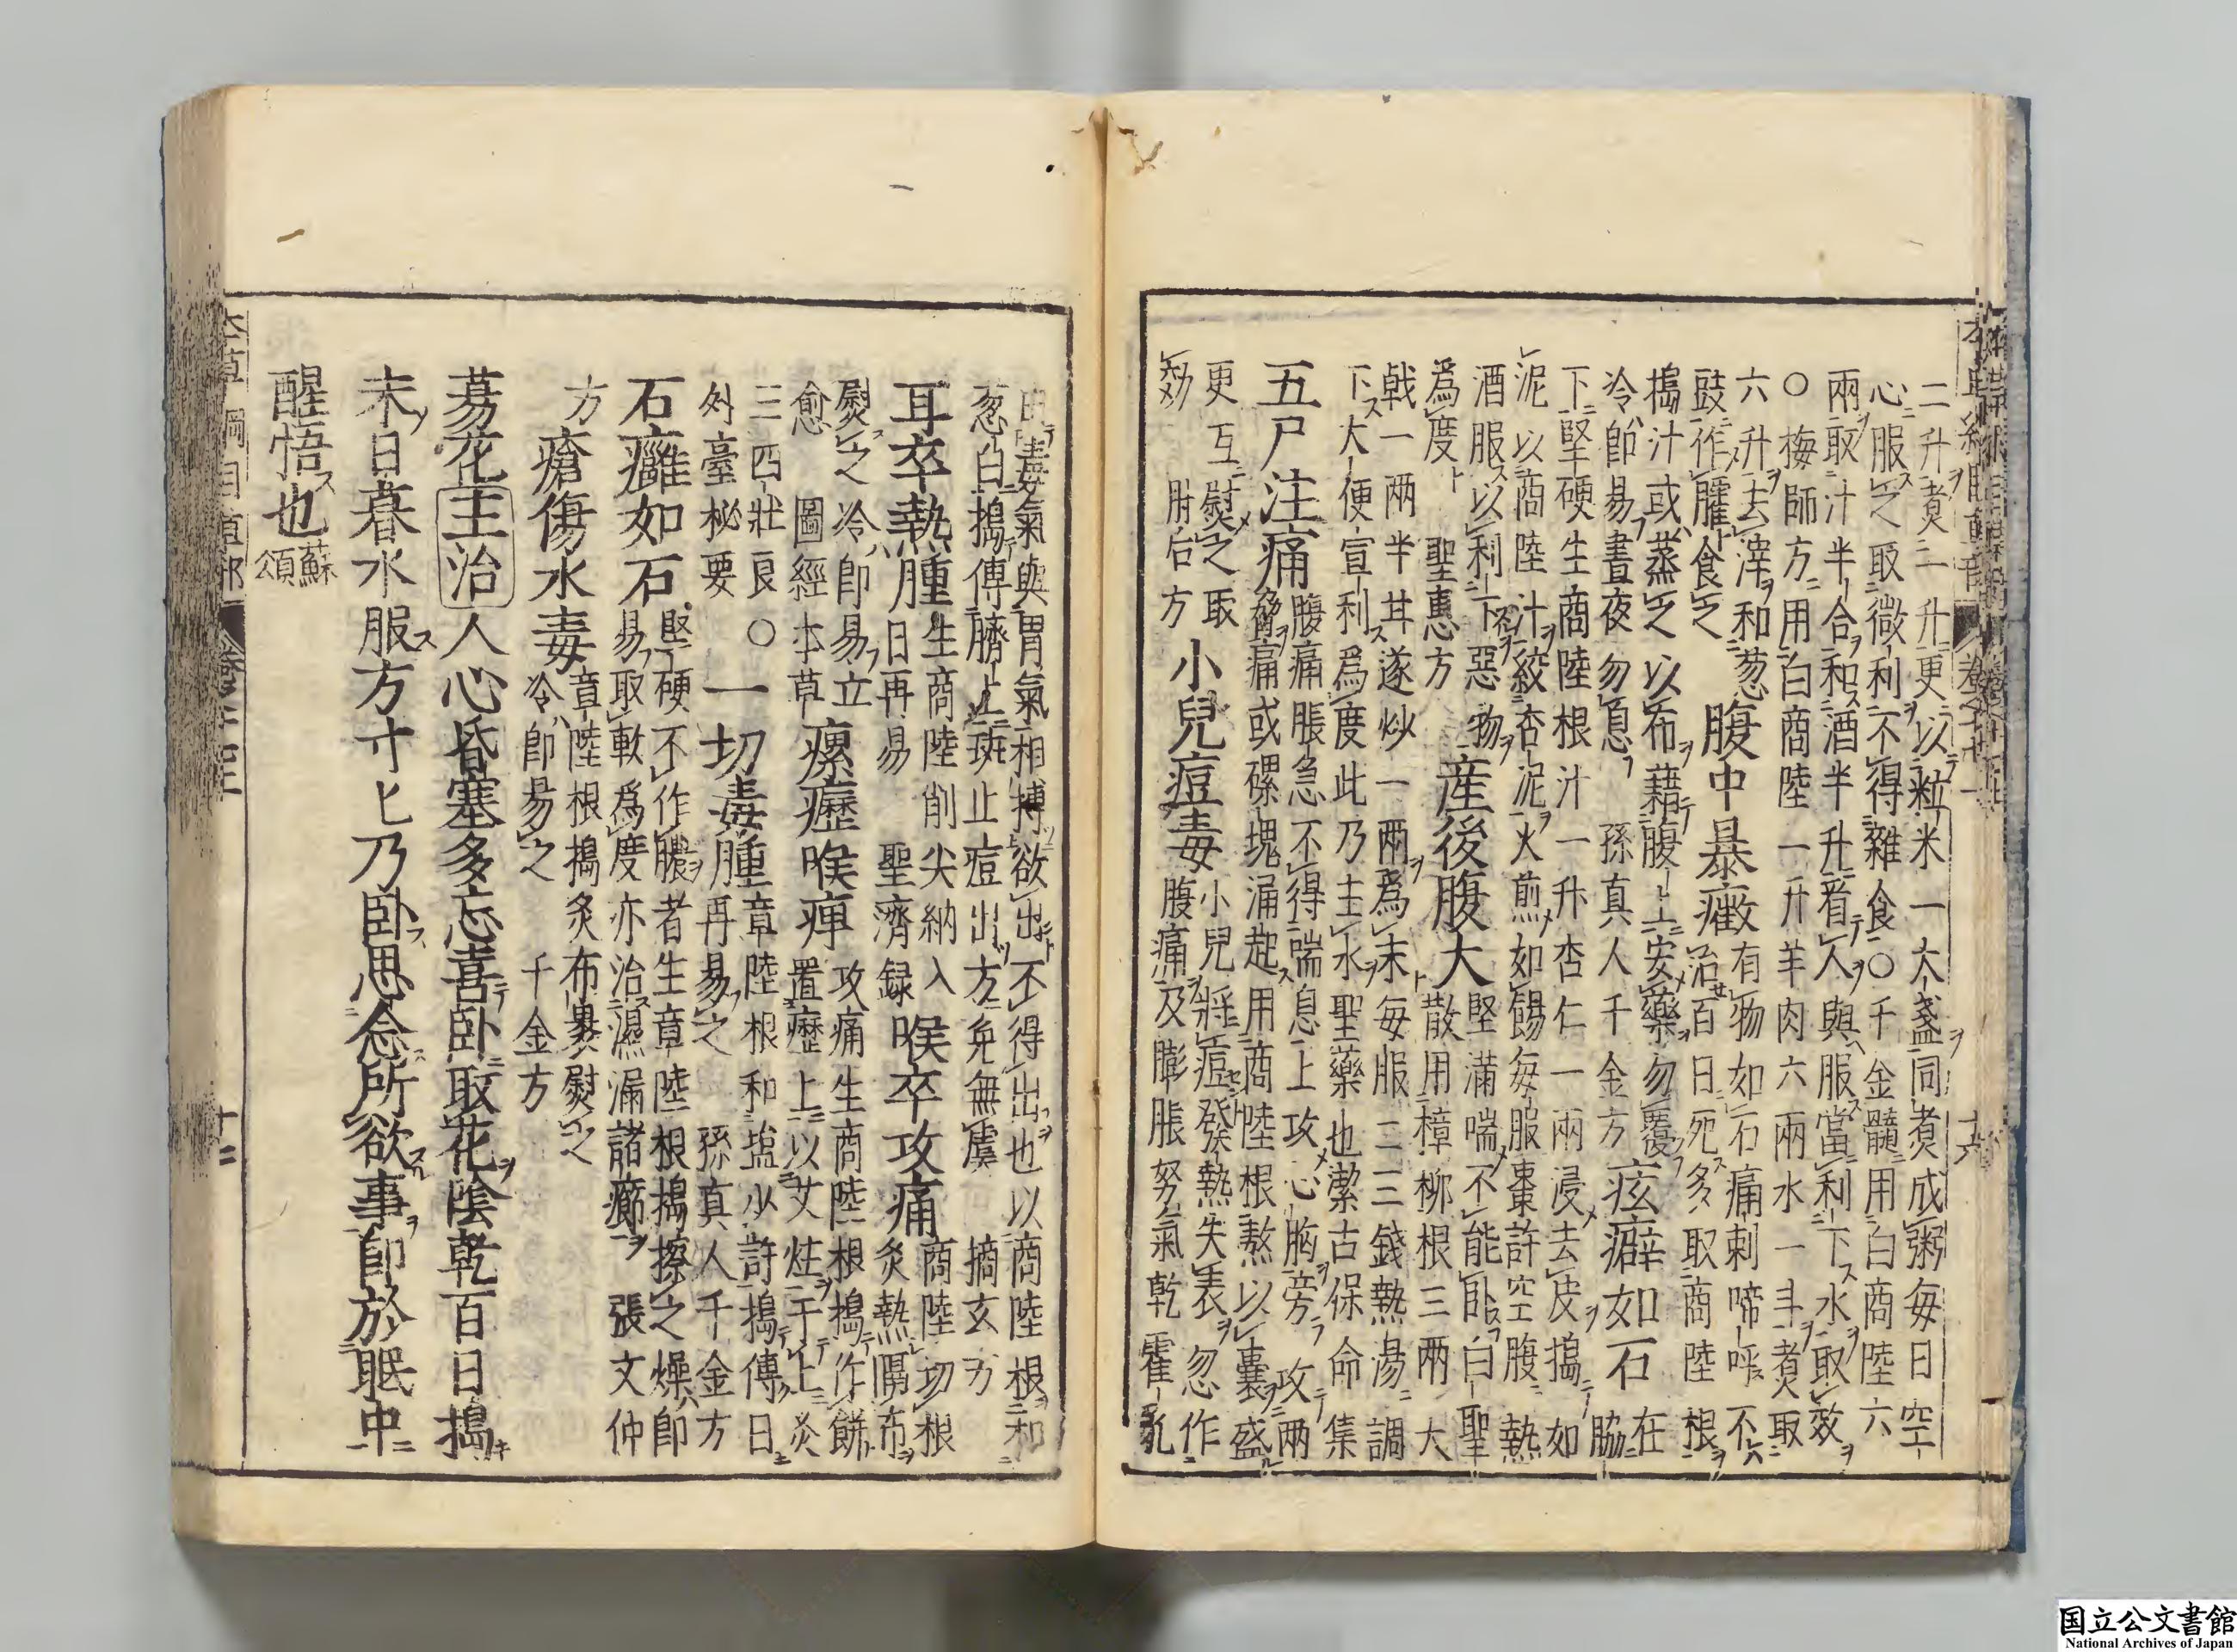 二升煮三升更以粒米一大盞同煮成粥毎日空
心服之取微利不得雜食○千金髓用白商陸六
兩取汁半合和酒半升看人與服當利下水取效
○梅師方用白商陸一升羊肉六兩水一斗煮取
六升去滓和葱
豉作臛食之
腹中暴癥
有物如石痛刺啼呼不
治百日死多取商陸根
搗汁或蒸之以布藉腹上安藥勿覆
冷即易晝夜勿息 孫真人千金方
痃癖如石
在
脇
下堅硬生商陸根汁一升杏仁一兩浸去皮搗如
泥以商陸汁絞杏泥火煎如餳毎服棗許空腹熱
酒服以利下惡物
為度 聖惠方
産後腹大
堅滿喘不能臥白聖
散用樟柳根三兩大
戟一兩半甘遂炒一兩為末毎服二三錢熱湯調
下大便宣利為度此乃主水聖藥也潔古保命集
五尸注痛
腹痛脹急不得喘息上攻心胸旁攻兩
脇痛或磥塊涌起用商陸根熬以囊盛
更互熨之取
效 肘后方
小兒痘毒
小兒將痘發熱失表忽作
腹痛及膨脹努氣乾霍乱
由毒氣與胃氣相搏欲出不得出也以商陸根和
葱白搗傅臍上斑止痘出方免無虞 摘玄方
耳卒熱腫
生商陸削尖納入
日再易 聖濟録
喉卒攻痛
商陸切根
炙熱隔布
熨之冷即易立
愈 圖經本草
瘰癧喉痺
攻痛生商陸根搗作餅
置癧上以艾炷于上炙
三四壯良○
外臺秘要
一切毒腫
章陸根和塩少許搗傅日
再易之 孫真人千金方
石癰如石
堅硬不作膿者生章陸根搗擦之燥即
易取軟為度亦治濕漏諸癤 張文仲
方
瘡傷水毒
章陸根搗炙布裹熨之
冷即易之 千金方
蒻花主治人心昏塞多忘喜臥取花陰乾百日搗
末日暮水服方寸匕乃臥思念所欲事即於眠中
醒悟也
蘇
頌
国立公文書館
National Archives of Japan